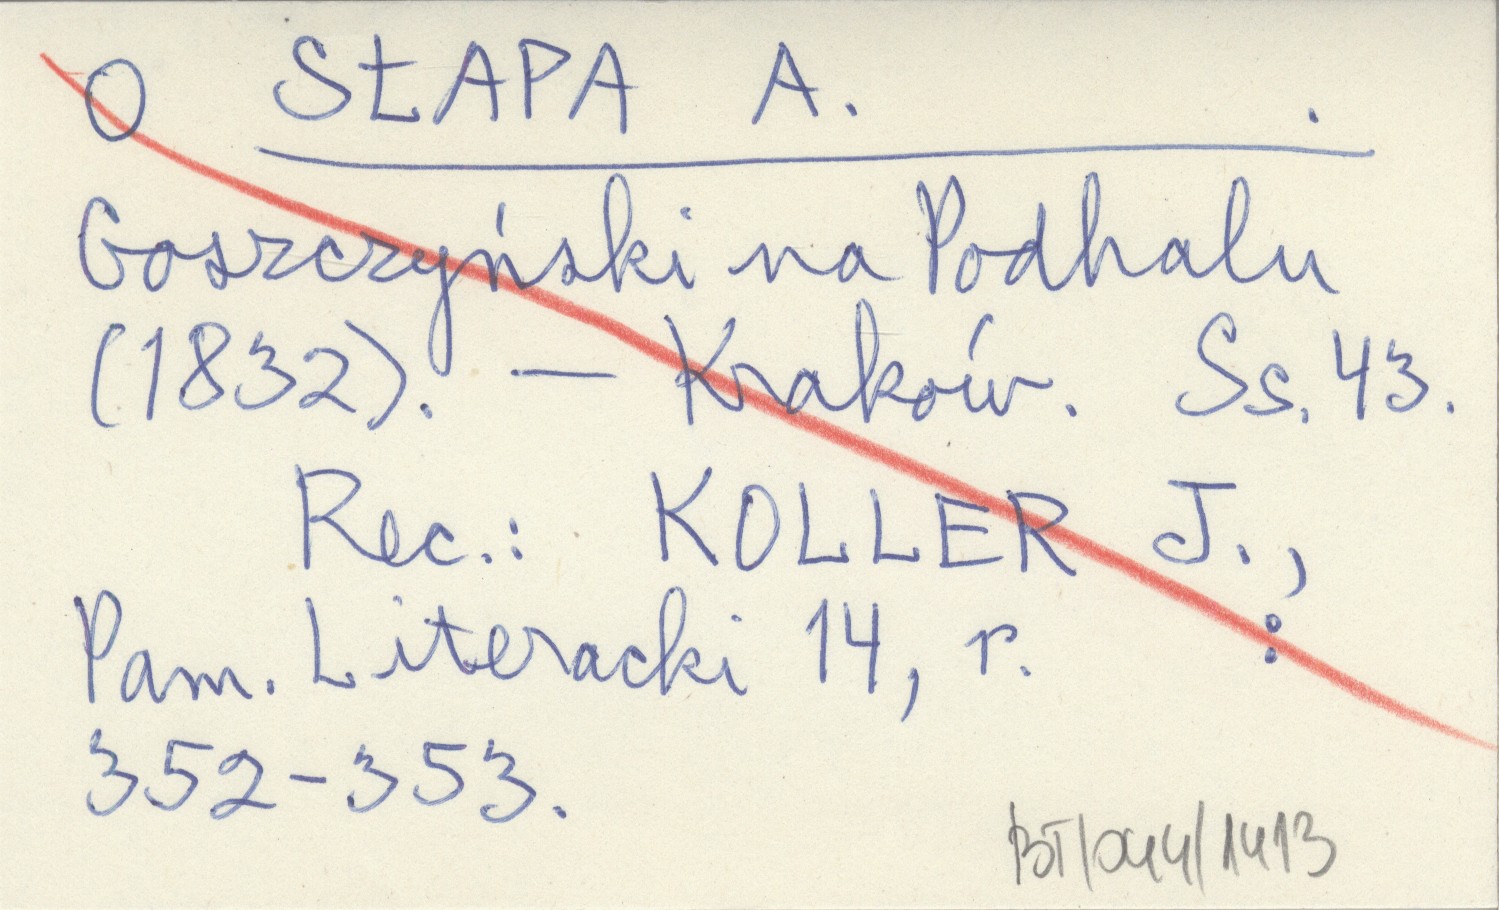 O SŁAPA A. .
Goszczyński na Podhalu
(1832). — Kraków. Ss. 43.
Rec.: KOLLER J.,
Pam. Literacki 14, r. :
352-353.
BT/044/1413